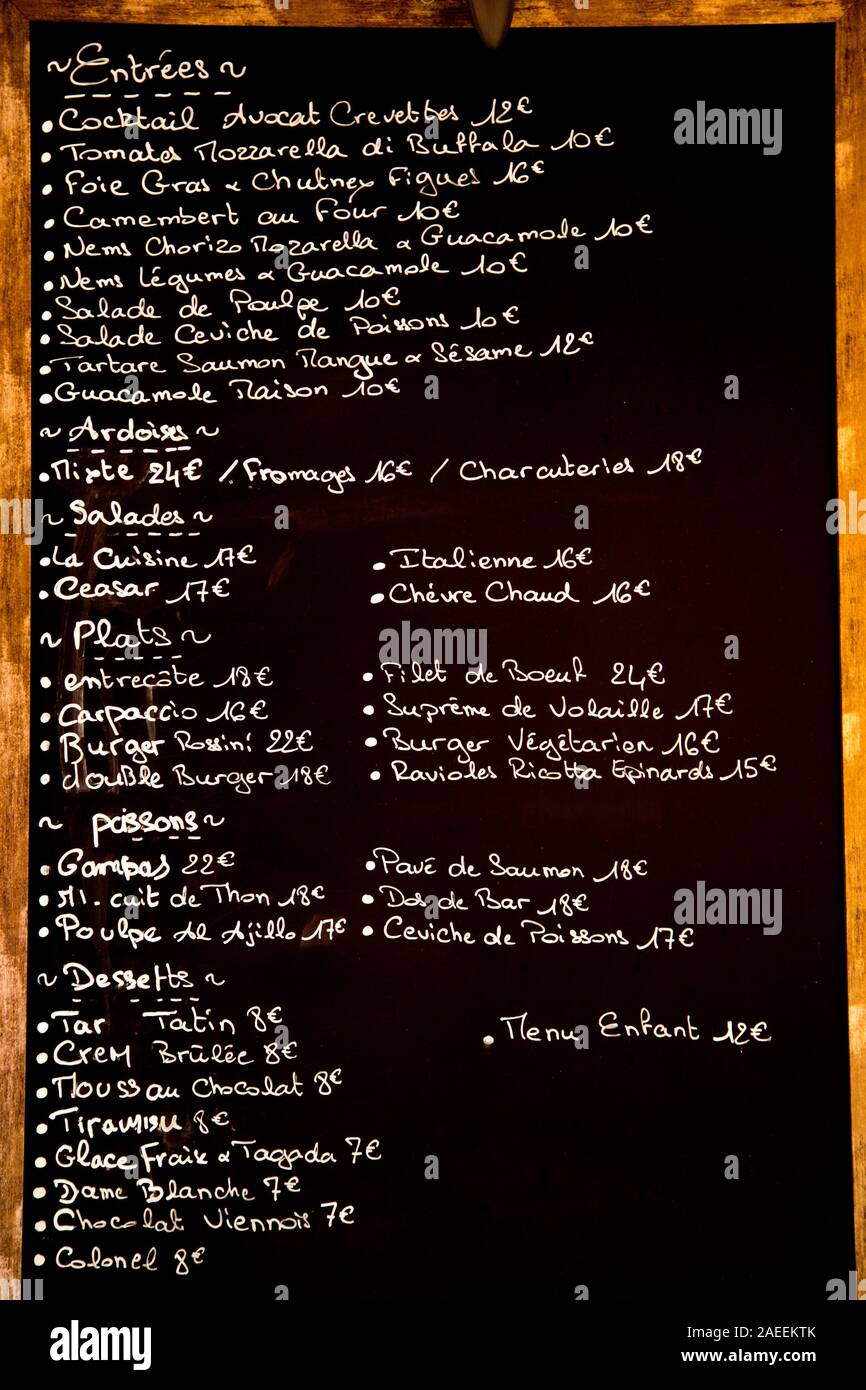 ~ Entrées ~
• Cocktail Avocat Crevettes 12€
• Tomates Mozzarella di Buffala 10€
• Foie Gras & Chutney Figues 16€
• Camembert au Four 10€
• Nems Chorizo Mozarella & Guacamole 10€
• Nems Légumes & Guacamole 10€
• Salade de Poulpe 10€
• Salade Ceviche de Poissons 10€
• Tartare Saumon Mangue & Sésame 12€
• Guacamole Maison 10€
~ Ardoises ~
• Mixte 24€ / Fromages 16€ / Charcuteries 18€
~ Salades ~
• La Cuisine 17€ • Italienne 16€
• Ceasar 17€ • Chévre Chaud 16€
~ Plats ~
• entrecôte 18€ • Filet de Boeuf 24€
• Carpaccio 16€ • Suprême de Volaille 17€
• Burger Rossini 22€ • Burger Végétarien 16€
• double Burger 18€ • Ravioles Ricotta Epinards 15€
~ poissons ~
• Gambas 22€ • Pavé de Saumon 18€
• Mi. cuit de Thon 18€ • Dos de Bar 18€
• Poulpe Al Ajillo 17€ • Ceviche de Poissons 17€
~ Desserts ~
• Tar Tatin 8€ • Menu Enfant 12€
• Crem Brûlée 8€
• Mouss au Chocolat 8€
• Tiramisu 8€
• Glace Fraix & Tagada 7€
• Dame Blanche 7€
• Chocolat Viennois 7€
• Colonel 8€
alamy
Image ID: 2AEEKTK
www.alamy.com